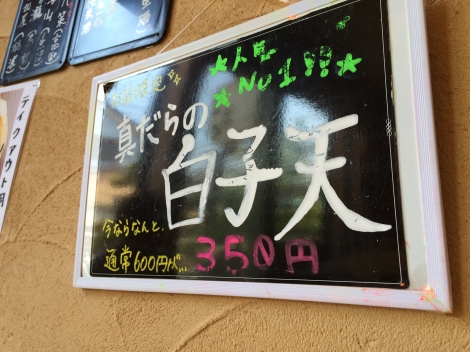 ★人気★
★No1!!★
真だらの
白子天
今ならなんと、
通常600円が… 350円
テイクアウト用